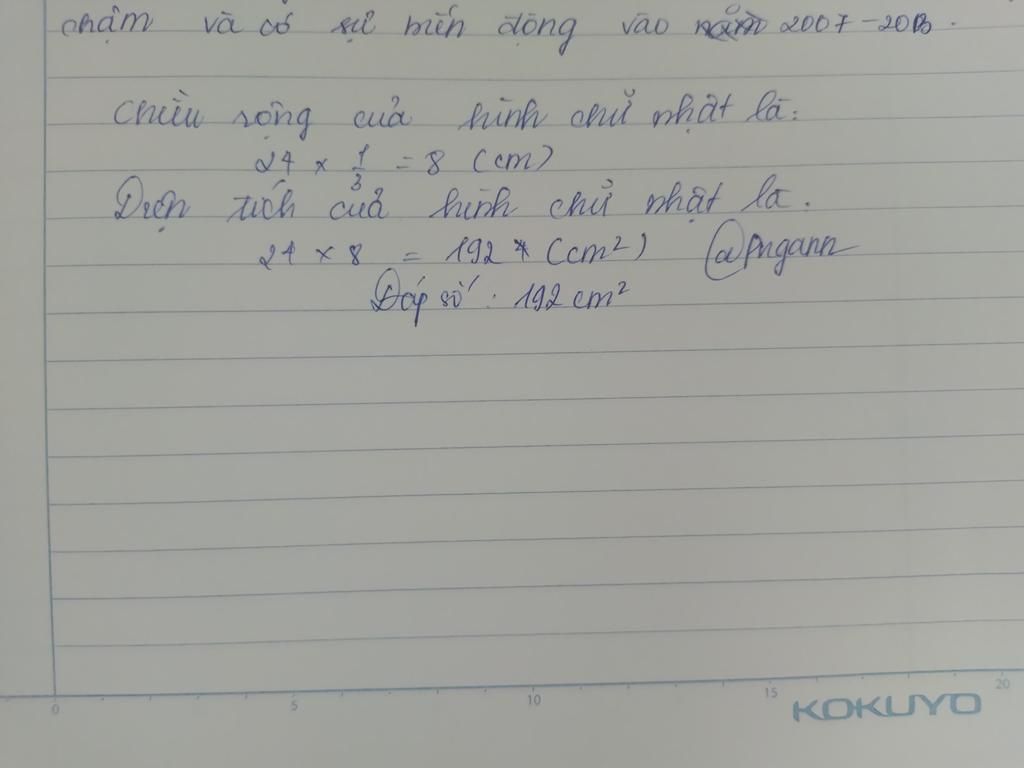 chậm và có sự biến động vào năm 2007-2013.
Chiều rộng của hình chữ nhật là:
24 × 1/3 = 8 (cm)
Diện tích của hình chữ nhật là.
24 × 8 = 192 (cm²) @pngann
Đáp số: 192 cm²
0 5 10 15 20
KOKUYO